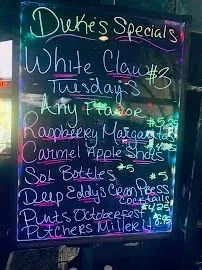 Duke's Specials
White Claw $3
Tuesday's
Any Flavor
Raspberry Margaritas $5.25
Carmel Apple Shots
Sol Bottles $5
Deep Eddy's $5
Cocktails
Pints Octoberfest $4.25
Pitchers Miller Lt